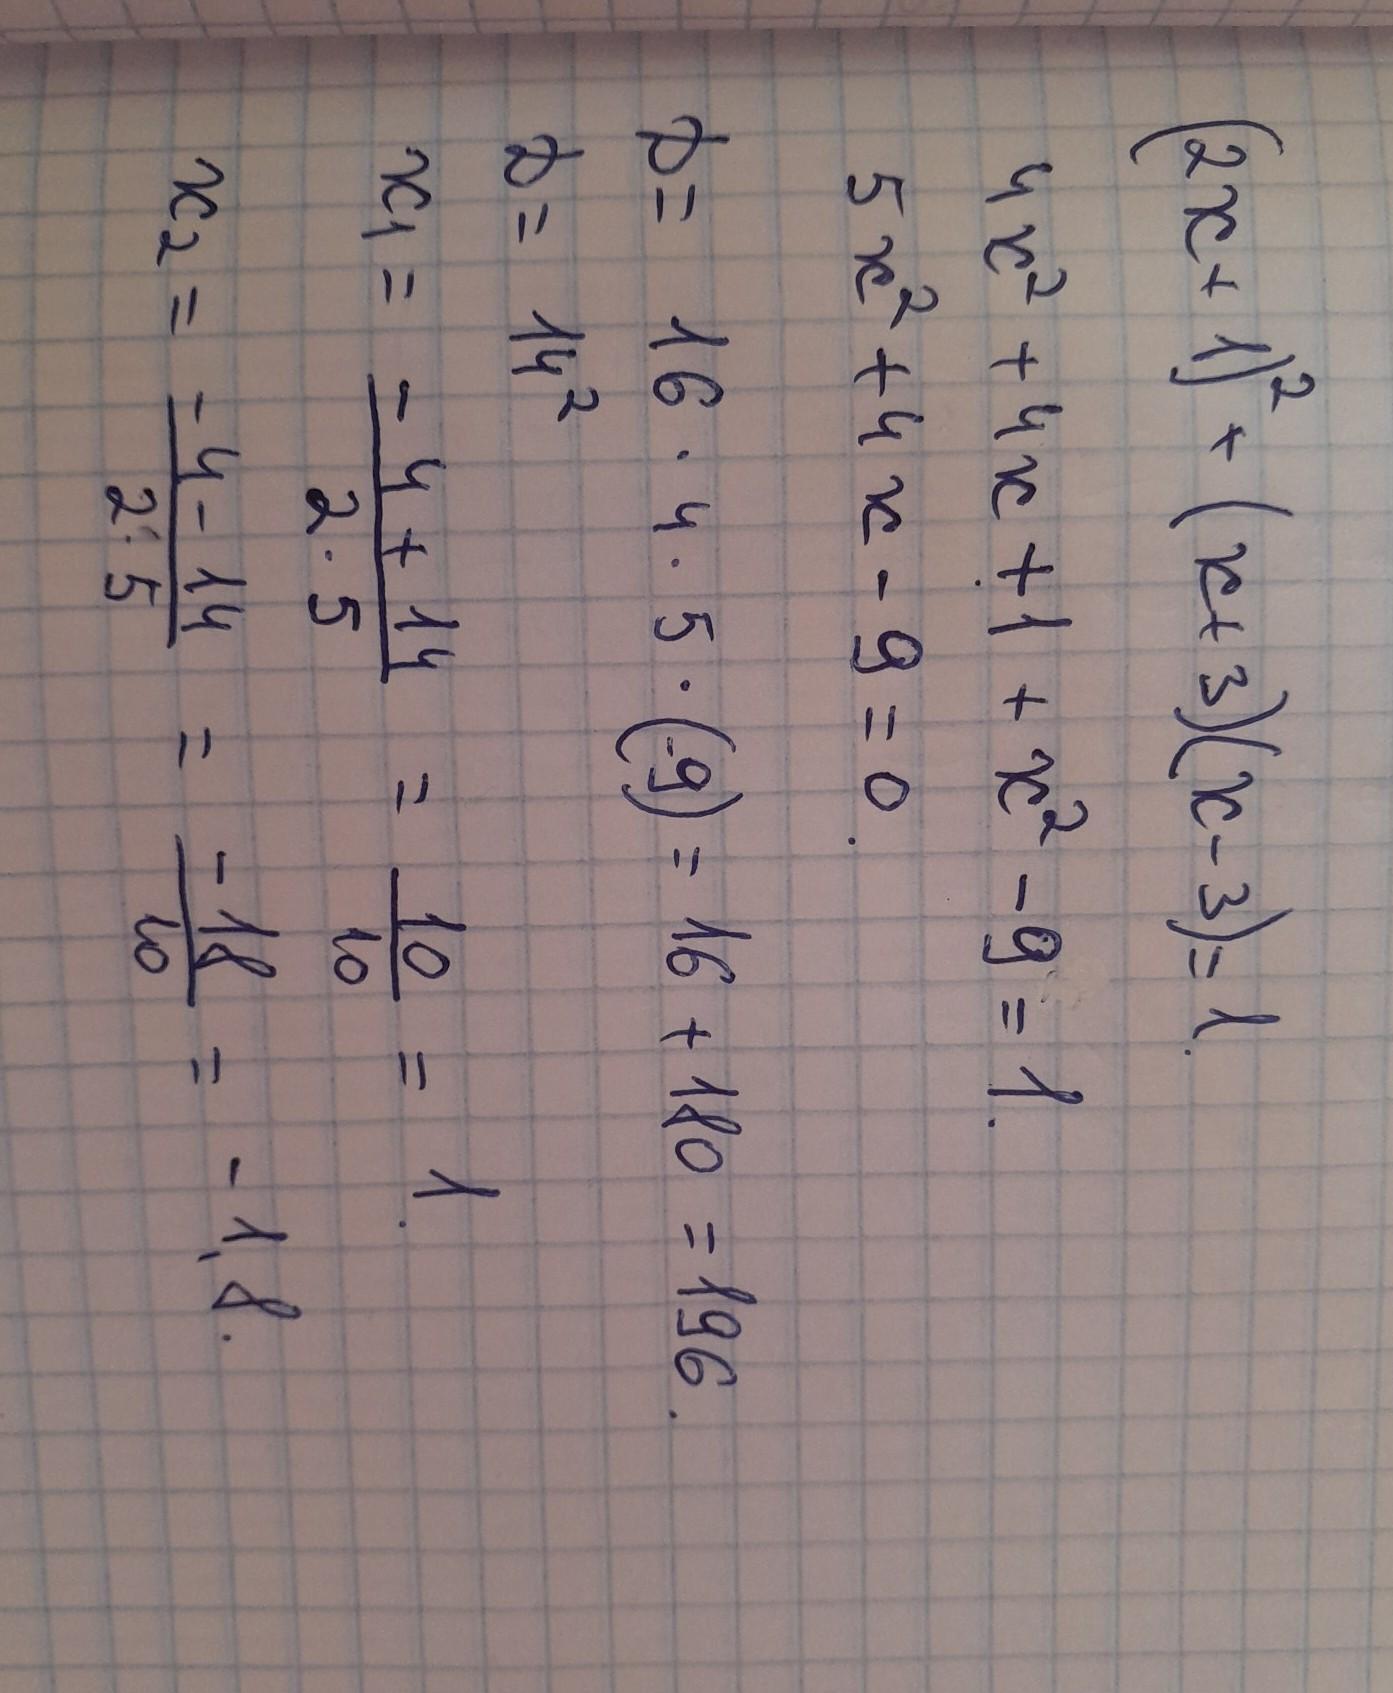 (2x+1)² + (x+3)(x-3)=1.
4x² +4x+1+x² -9=1.
5x²+4x-9=0.
D= 16·4·5·(-9)=16+180=196.
D= 14²
x₁ = \frac{-4+14}{2·5} = \frac{10}{10} = 1.
x₂ = \frac{-4-14}{2·5} = \frac{-18}{10} = -1,8.